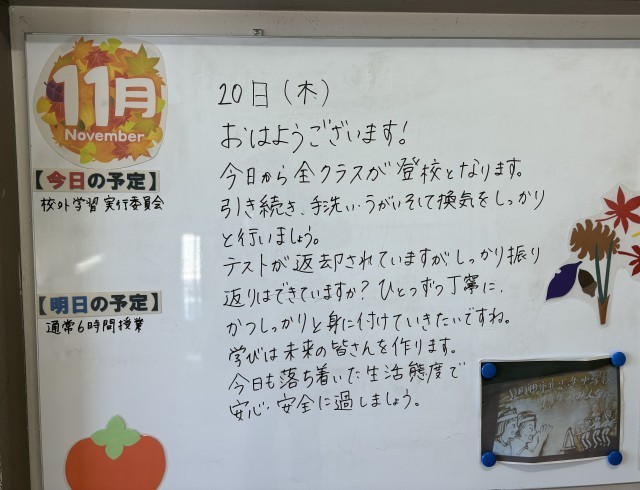 11月
November
【今日の予定】
校外学習 実行委員会
【明日の予定】
通常6時間授業
20日(木)
おはようございます!
今日から全クラスが登校となります。
引き続き、手洗い・うがいそして換気をしっかり
と行いましょう。
テストが返却されていますがしっかり振り
返りはできていますか?ひとつずつ丁寧に、
かつしっかりと身に付けていきたいですね。
学びは未来の皆さんを作ります。
今日も落ち着いた生活態度で
安心・安全に過しましょう。